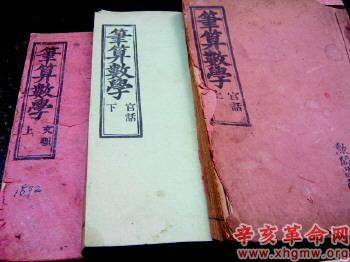 筆算數學
文理
上
1892
筆算數學
官話
下
筆算數學
官話
上
辛亥革命网
www.xhgmw.org